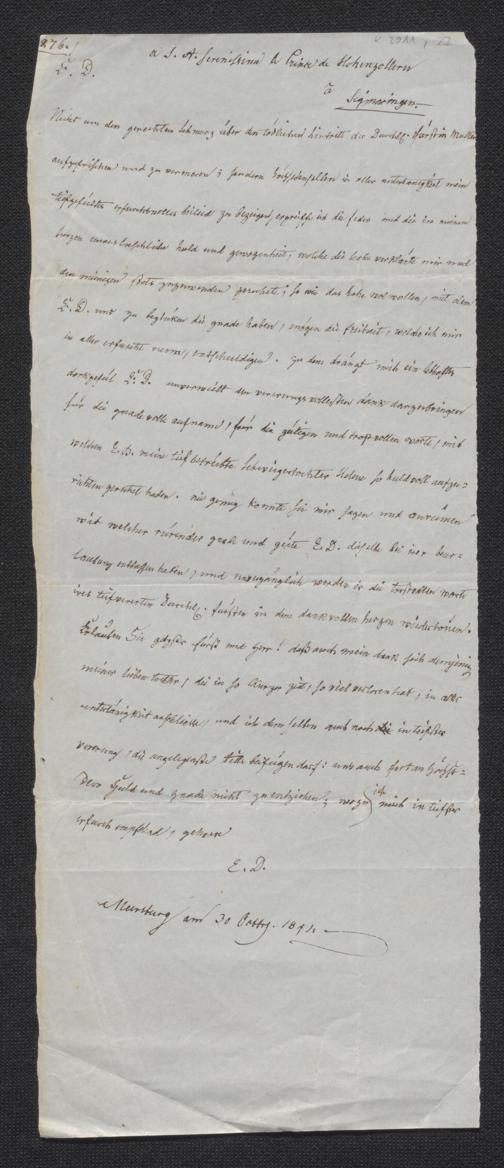 276.
a S. A. Serenissime le Prince de Hohenzollern
E. D.
à
Sigmaringen.
Nicht um den gerechten schmerz über den tödlichen hintritt der Durchlg. Fürstin Mutter
aufzufrischen und zu vermeren; sondern höchstdenselben in aller unterthänigkeit mein
tiefgefühltes erfurchtvolles beileid zu bezeigen, ergreiffe ich die feder und die in meinem
herzen unauslöschliche huld und gewogenheit, welche die hohe verklärte mir und
den meinigen stets zuzuwenden geruhete; so wie das hohe wolwollen, mit dem
E. D. uns zu beglüken die gnade haben, mögen die freiheit, welche ich mir
in aller erfurcht nemme, entschuldigen. zu dem drängt mich ein lebhaftes
dankgefül E. D. unverweilt den vererungsvollesten dank darzubringen
für die gnadevolle aufname, für die gütigen und trostvollen worte, mit
welchen E. D. meine tief betrübte schwiegertochter so huldvoll aufge-
richten geruhet haben. nie genug konnte sie mir sagen und
mit welcher rürender gnade und güte E. D. dieselbe bei irer beur-
laubung entlassen haben, und unvergänglich werden ir die trostvollen worte
ires tiefvererten Durchlg. fürsten in dem dankvollen herzen
Erlauben Sie gdgster fürst und herr! daß auch mein dank sich demjenigen
meiner lieben tochter, die in so kurzer zeit, so viel verloren hat, in aller
unterthänigkeit anschließe, und ich demselben auch noch die in tiefster
vererung, die angelegenste bitte beifügen darf: uns auch fortan höchst-
Dero Huld und Gnade nicht zu entziehen; wozu ich mich in tiefster
erfurcht empfelend, geharre
E. D.
Meersburg am 30 Octbr. 1841.